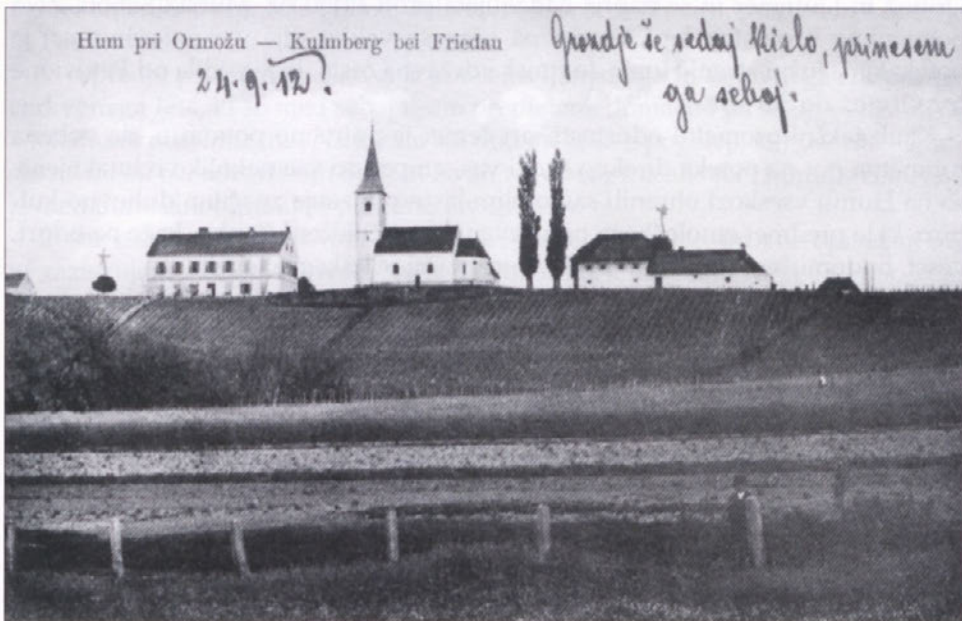 Hum pri Ormožu — Kulmberg bei Friedau
24. 9. 12.
Grozdje še sedaj kislo, prinesem
ga seboj.